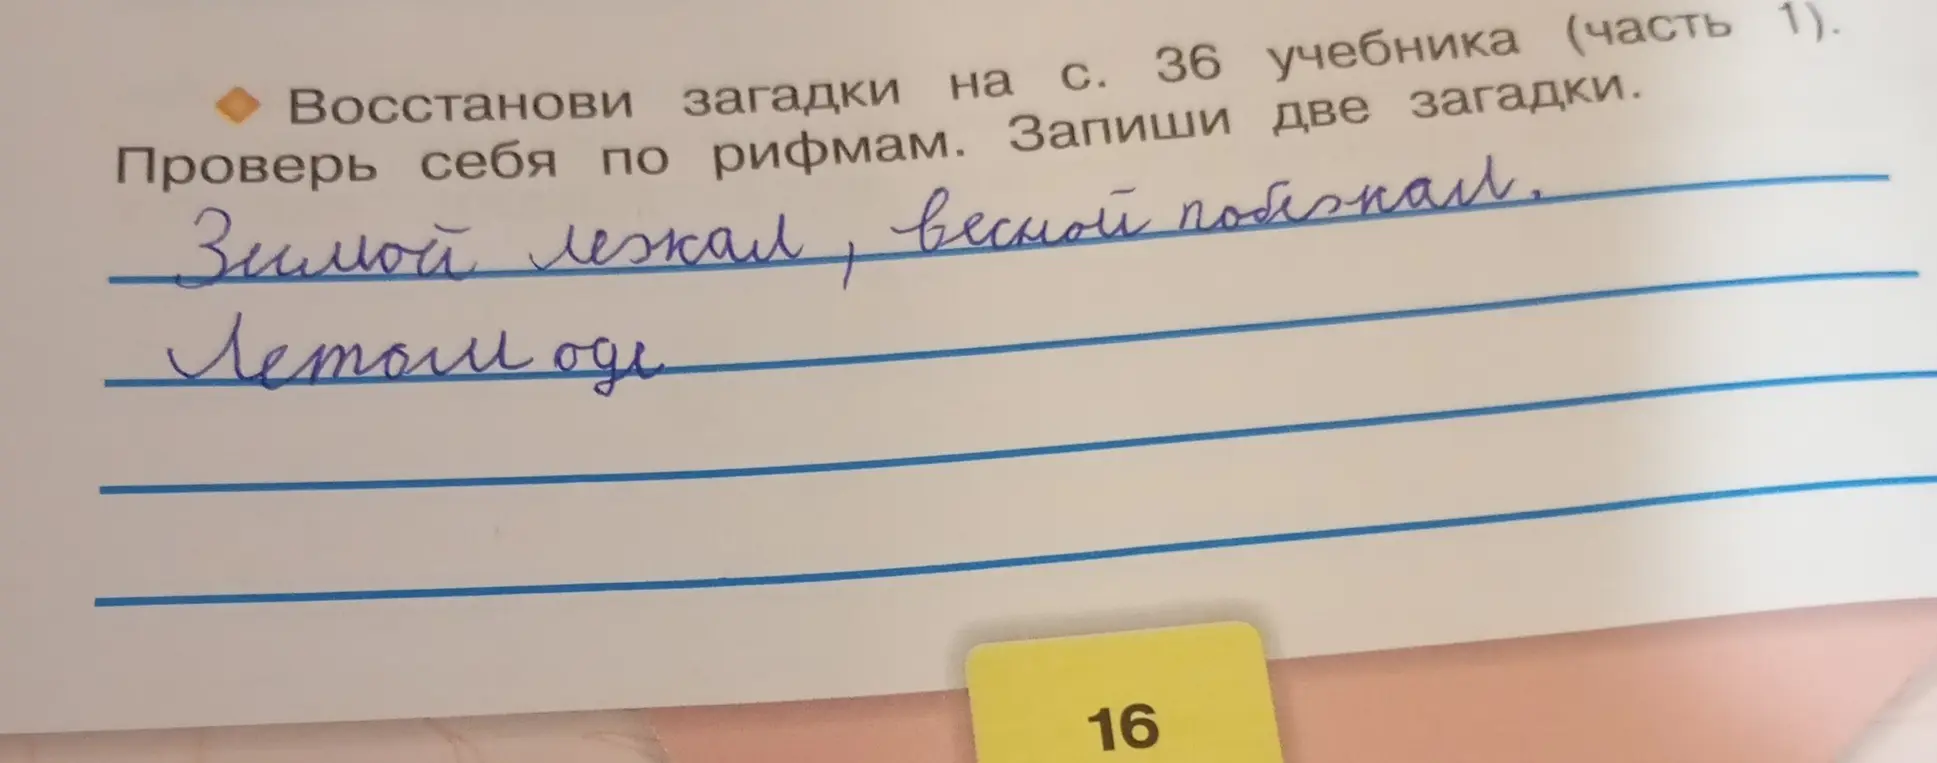 Восстанови загадки на с. 36 учебника (часть 1).
Проверь себя по рифмам. Запиши две загадки.
Зимой лежал, весной побежал.
Летом оде
16